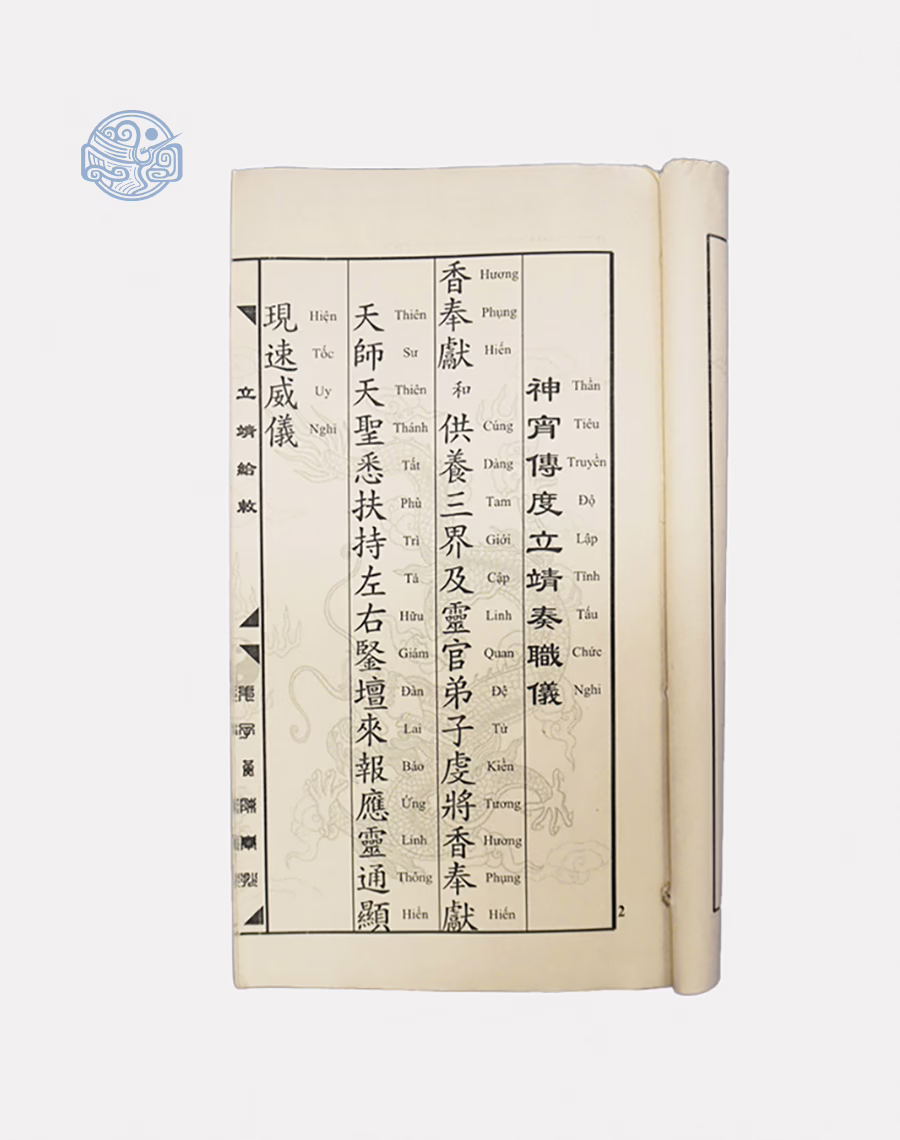 神宵傳度立靖奏職儀
Thần Tiêu Truyền Độ Lập Tĩnh Tấu Chức Nghi
香奉獻 和 供養三界及靈官弟子虔將香奉獻
Hương Phụng Hiến Cúng Dàng Tam Giới Cập Linh Quan Đệ Tử Kiền Tương Hường Phụng Hiến
天師天聖悉扶持左右鋻壇來報應靈通顯
Thiên Sư Thiên Thánh Tất Phù Trì Tả Hữu Giám Đàn Lai Báo Ứng Linh Thông Hiển
現速威儀
Hiện Tốc Uy Nghi
立靖給敕
2